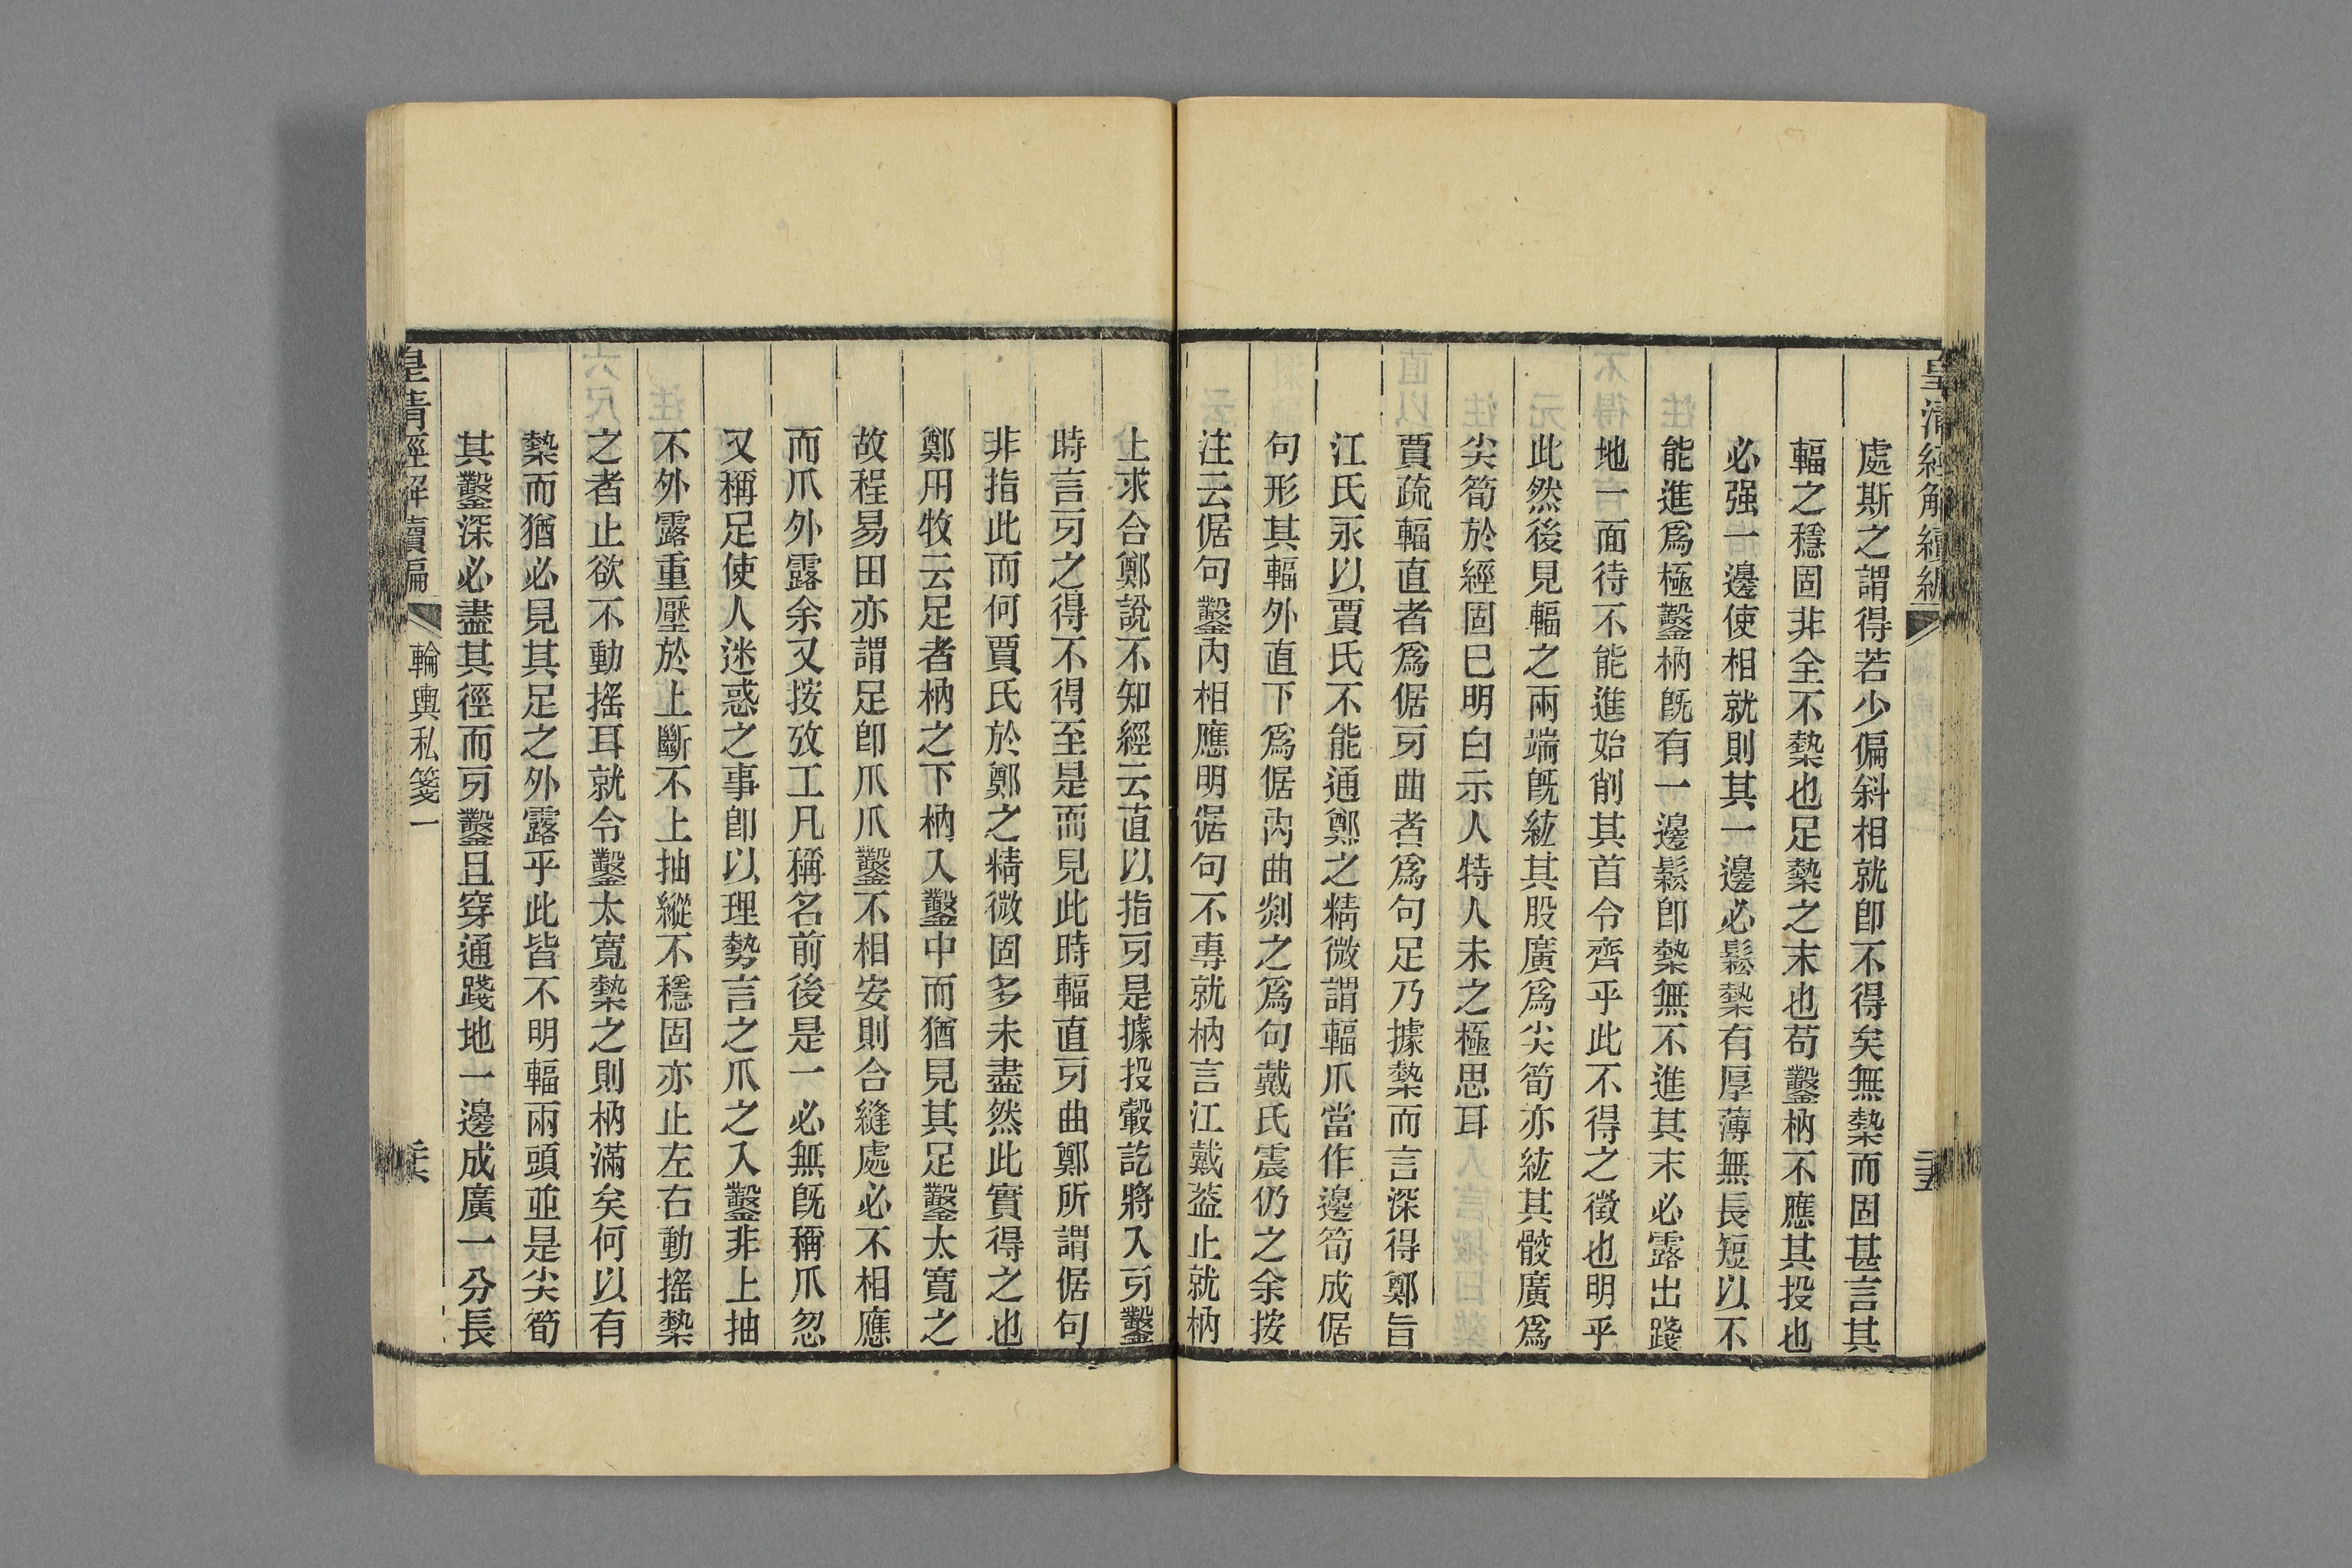 皇清經解續編
處斯之謂得若少偏斜相就卽不得矣無槷而固甚言其
輻之穩固非全不槷也足槷之末也苟鑿枘不應其投也
必强一邊使相就則其一邊必鬆槷有厚薄無長短以不
能進爲極鑿枘旣有一邊鬆卽槷無不進其末必露出踐
地一面待不能進始削其首令齊乎此不得之徵也明乎
此然後見輻之兩端旣紘其股廣爲尖筍亦紘其骹廣爲
尖筍於經固巳明白示人特人未之極思耳
賈疏輻直者爲倨牙曲者爲句足乃據槷而言深得鄭旨
江氏永以賈氏不能通鄭之精微謂輻爪當作邊筍成倨
句形其輻外直下爲倨內曲剡之爲句戴氏震仍之余按
注云倨句鑿內相應明倨句不專就枘言江戴葢止就枘
上求合鄭說不知經云直以指牙是據投轂訖將入牙鑿
時言牙之得不得至是而見此時輻直牙曲鄭所謂倨句
非指此而何賈氏於鄭之精微固多未盡然此實得之也
鄭用牧云足者枘之下枘入鑿中而猶見其足鑿太寬之
故程易田亦謂足卽爪爪鑿不相安則合縫處必不相應
而爪外露余又按攷工凡稱名前後是一必無旣稱爪忽
又稱足使人迷惑之事卽以理勢言之爪之入鑿非上抽
不外露重壓於上斷不上抽縱不穩固亦止左右動搖槷
之者止欲不動搖耳就令鑿太寬槷之則枘滿矣何以有
槷而猶必見其足之外露乎此皆不明輻兩頭並是尖筍
其鑿深必盡其徑而牙鑿且穿通踐地一邊成廣一分長
皇清經解續編
輪輿私箋一